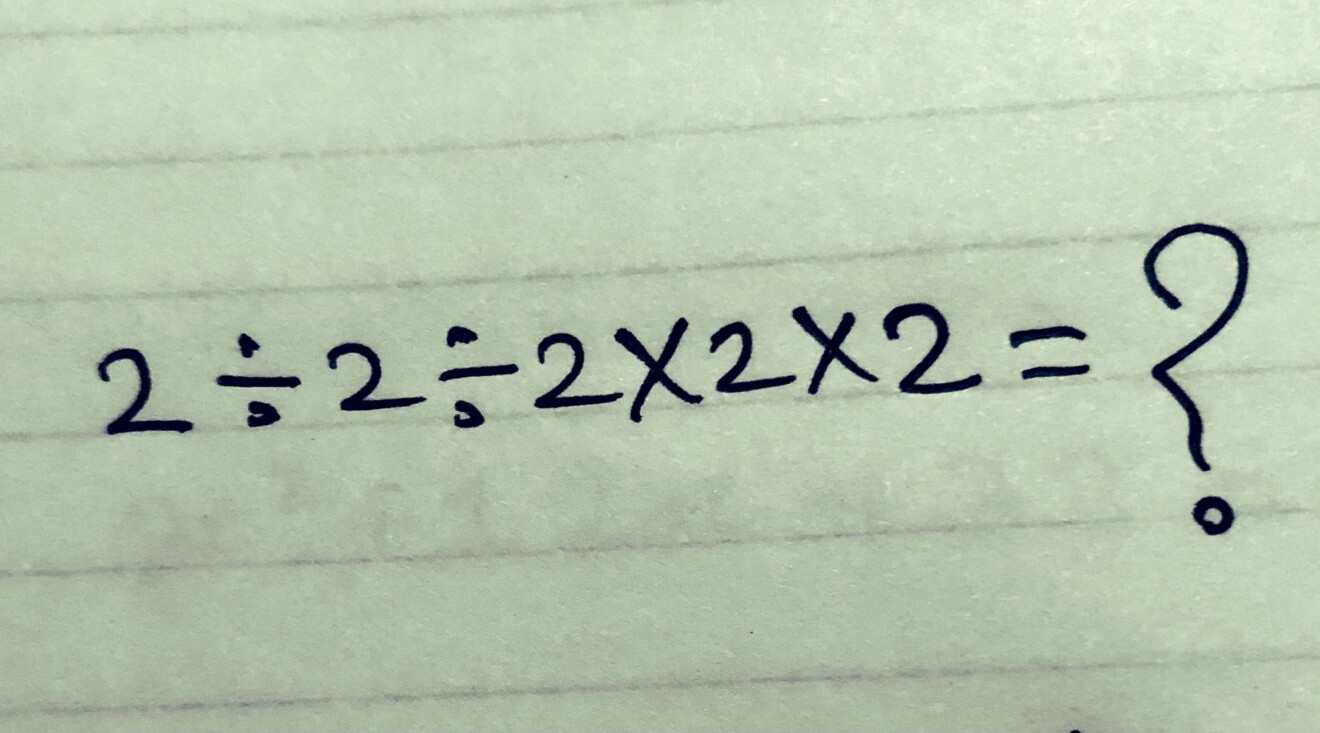 2÷2÷2×2×2=?